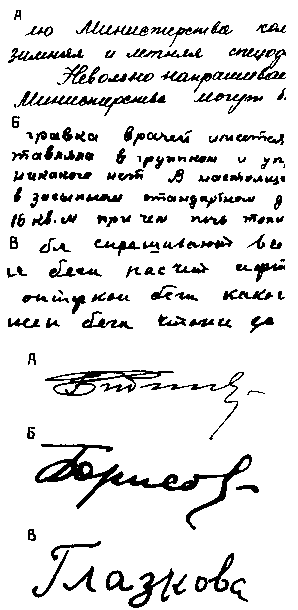 А
ию Министерства ком
зимняя и летняя спецод
Невольно напрашивае
Министерства могут б
Б
травка врачей имеется
тавляла в групком и уп
никакого нет В настояще
в засыпном стандартном д
16 кв. м при чем печь топи
В
бя спрашивают во
бега насчит
бега како
бега чтоли до
А
Б
Борисов
В
Глазкова